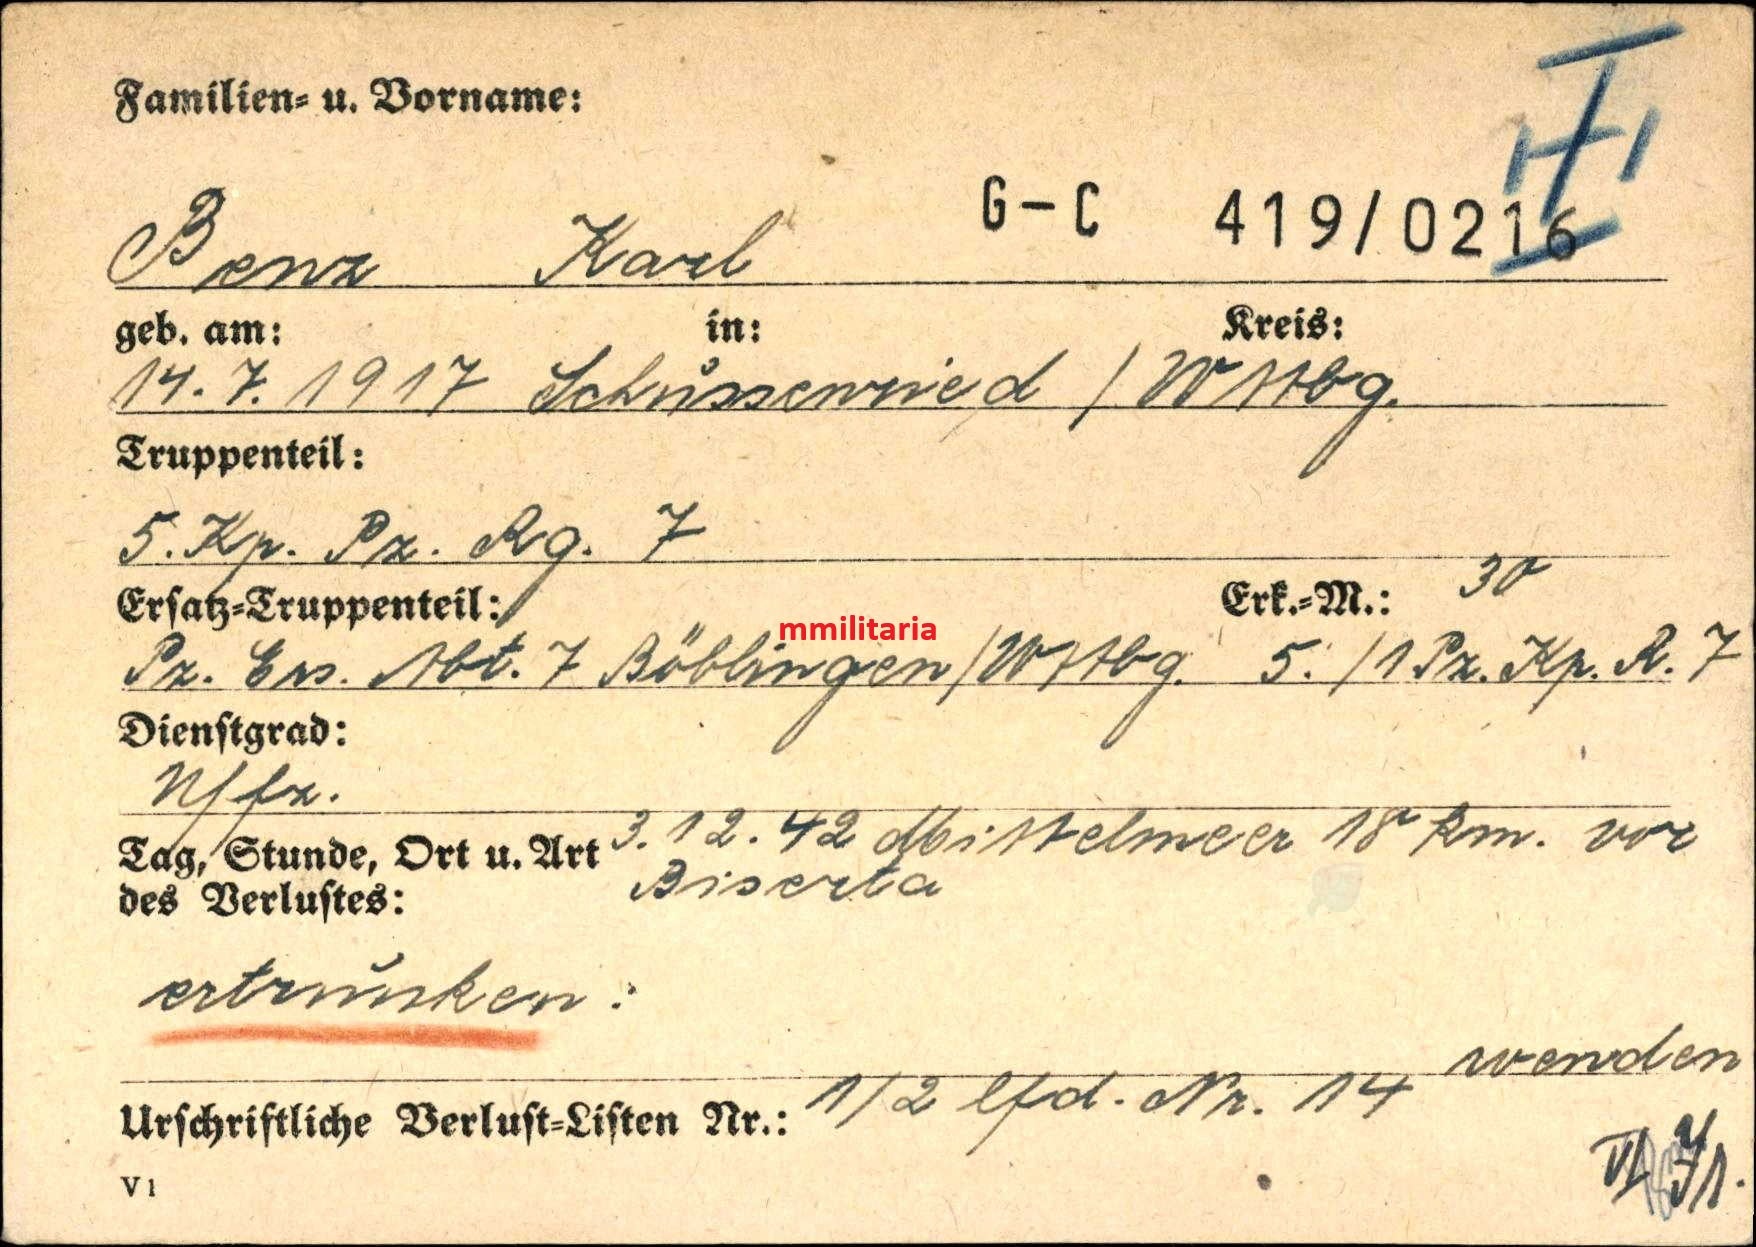 Familien- u. Vorname:
G-C 419/0216
Benz Karl
geb. am: in: Kreis:
14. 7. 1917 Schussenried / Wttbg.
Truppenteil:
5. Kp. Pz. Rg. 7
Ersatz-Truppenteil: Erk.-M.: 30
mmilitaria
Pz. Ers. Abt. 7 Böblingen/Wttbg. 5. /1 Pz. Kp. R. 7
Dienstgrad:
Uffz.
Tag, Stunde, Ort u. Art 3. 12. 42 Mittelmeer 18 km. vor
des Verlustes: Biserta
ertrunken:
wenden
Urschriftliche Verlust-Listen Nr.: 1/2 lfd. Nr. 14
V 1